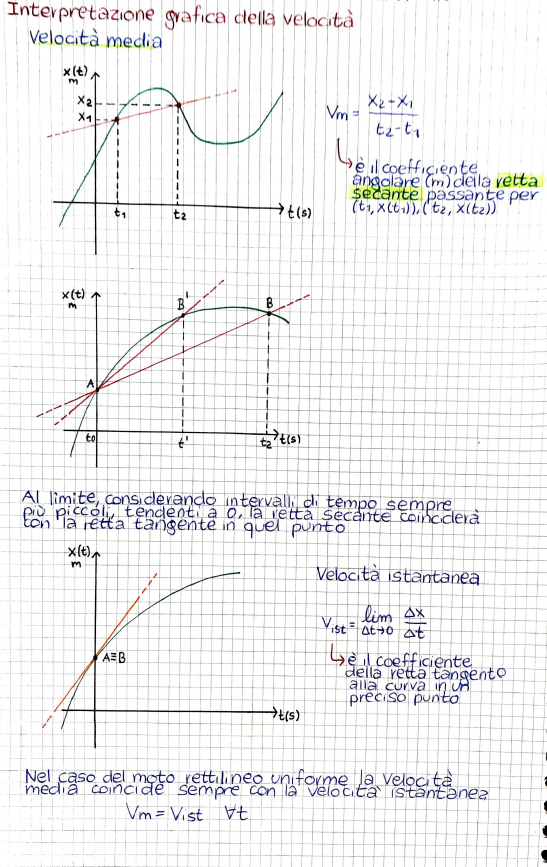 Interpretazione grafica della velocità
Velocità media
x(t)
m
x2
x1
t1
t2
t(s)
Vm = x2-x1 / t2-t1
è il coefficiente
angolare (m) della retta
secante passante per
(t1, x(t1)), (t2, x(t2))
x(t)
m
B'
B
A
t0
t'
t2
t(s)
Al limite, considerando intervalli di tempo sempre
più piccoli, tendenti a 0, la retta secante coinciderà
con la retta tangente in quel punto
x(t)
m
A≡B
t(s)
Velocità istantanea
Vist = lim Δt→0 Δx/Δt
è il coefficiente
della retta tangente
alla curva in un
preciso punto
Nel caso del moto rettilineo uniforme la velocità
media coincide sempre con la velocità istantanea
Vm = Vist ∀t